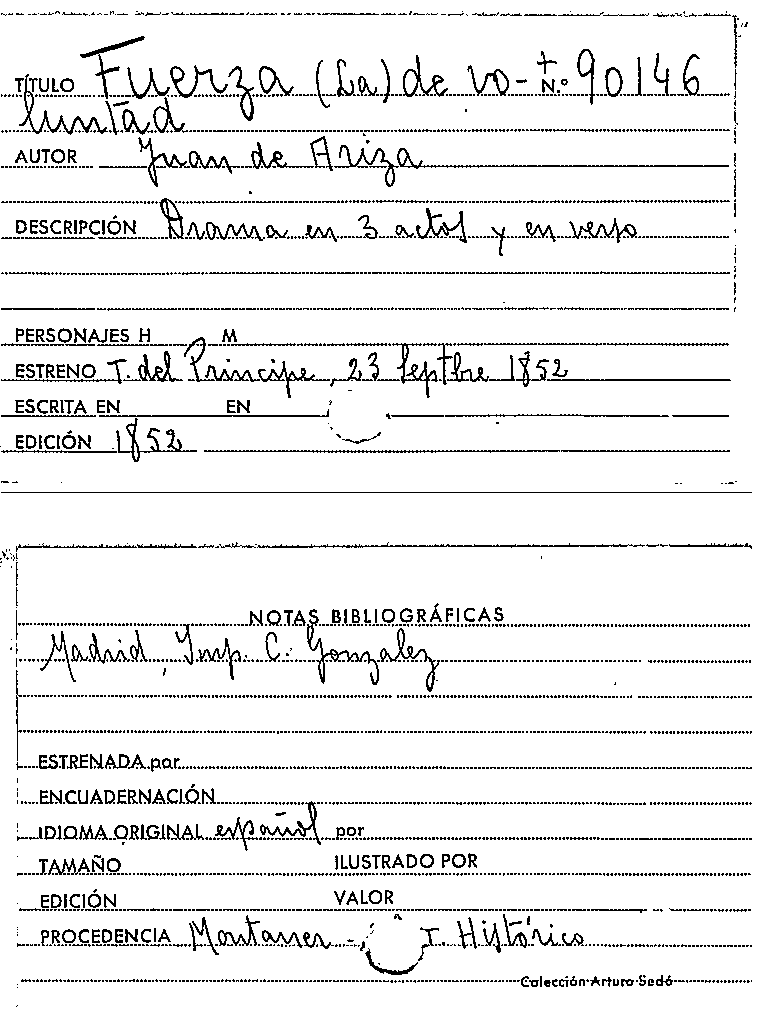 TÍTULO Fuerza (La) de vo- + N.º 90146
luntad
AUTOR Juan de Ariza
DESCRIPCIÓN Drama en 3 actos y en verso
PERSONAJES H M
ESTRENO T. del Principe, 23 Septbre 1852
ESCRITA EN EN
EDICIÓN 1852
NOTAS BIBLIOGRÁFICAS
Madrid, Imp. C. Gonzalez
ESTRENADA por
ENCUADERNACIÓN
IDIOMA ORIGINAL español por
TAMAÑO ILUSTRADO POR
EDICIÓN VALOR
PROCEDENCIA Montaner - T. Histórico
Colección Arturo Sedó